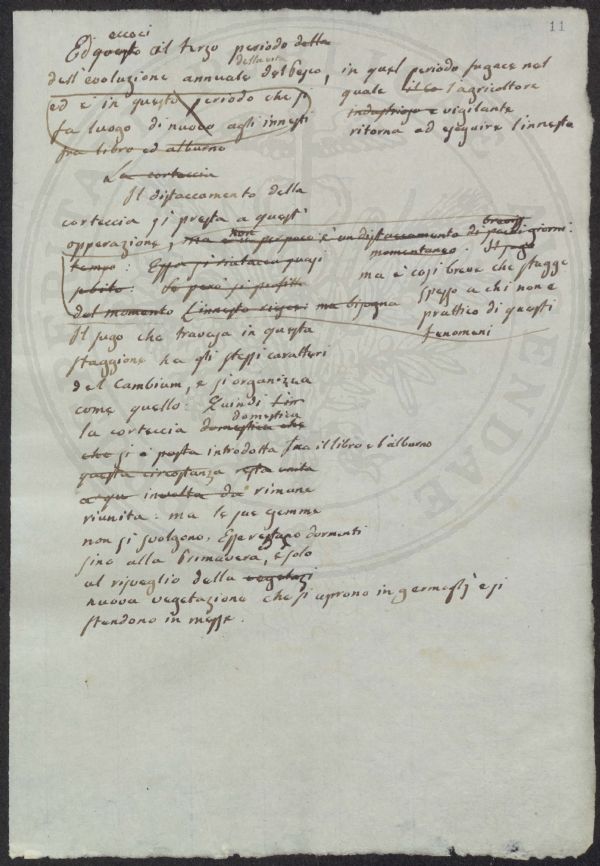 11
eccoci
Ed questo al terzo periodo della
della vita
dell'evoluzione annuale del Pesco, in quel periodo fugace nel
ed è in questo periodo che si
quale il l'agricoltore
fa luogo di nuovo agli innesti
industrioso e vigilante
fra libro ed alburno
ritorna ad eseguire l'innesto
La corteccia
Il distaccamento della
corteccia si presta a questi
non
opperazione, ma è un distaccamento di giorni
tempo: Essa si riatacca quasi
momentaneo.
subito: Se però si
ma è così breve che sfugge
del momento l'innesto ma bisogna
spesso a chi non è
prattico di questi
fenomeni
Il sugo che travasa in questa
staggione ha gli stessi caratteri
del Cambium, e si organizza
come quello: Quindi
domestica
la corteccia domestica che
che si è posta introdotta fra il libro e l'alburno
questa circostanza resta unita
involta da rimane
riunita: ma le sue gemme
non si svolgono: Esse restano dormenti
sino alla Primavera, e solo
al risveglio della vegetazi
nuova vegetazione che si aprono in germogli e si
stendono in messe.